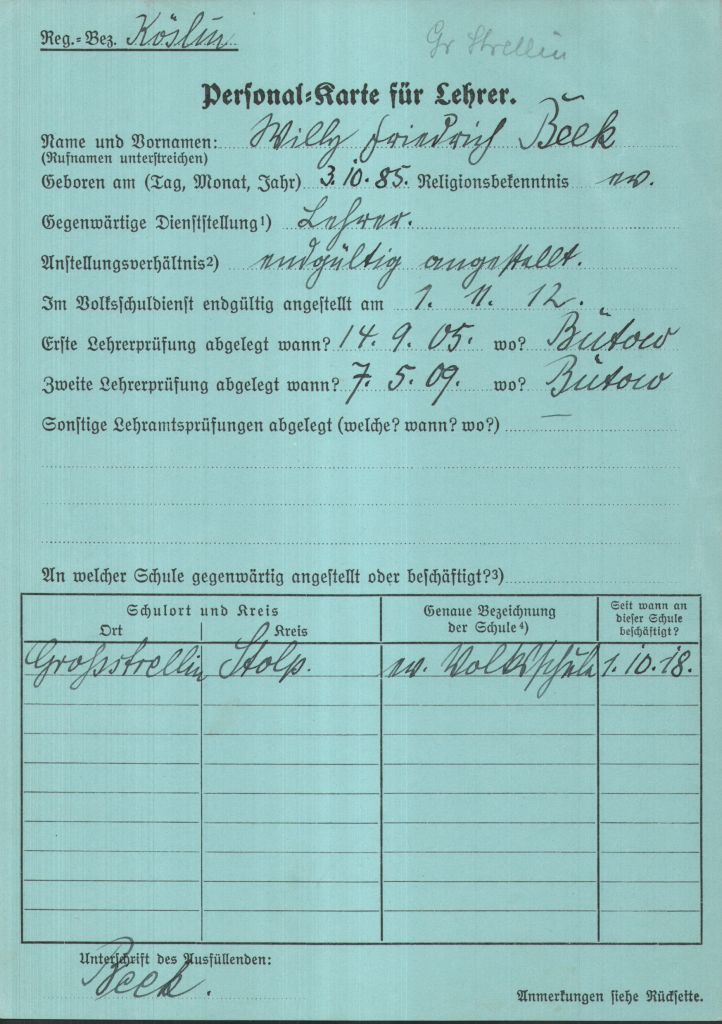 Reg.=Bez. Köslin
Gr Strellin
Personal=Karte für Lehrer.
Name und Vornamen: Willy Friedrich Beek
(Rufnamen unterstreichen)
Geboren am (Tag, Monat, Jahr) 3. 10. 85. Religionsbekenntnis ev.
Gegenwärtige Dienststellung¹) Lehrer.
Anstellungsverhältnis²) endgültig angestellt.
Im Volksschuldienst endgültig angestellt am 1. 11. 12.
Erste Lehrerprüfung abgelegt wann? 14. 9. 05. wo? Bütow
Zweite Lehrerprüfung abgelegt wann? 7. 5. 09. wo? Bütow
Sonstige Lehramtsprüfungen abgelegt (welche? wann? wo?) —
An welcher Schule gegenwärtig angestellt oder beschäftigt?³)
Schulort und Kreis
Ort Kreis
Genaue Bezeichnung
der Schule⁴)
Seit wann an
dieser Schule
beschäftigt?
Grossstrellin Stolp. ev. Volksschule 1. 10. 18.
Unterschrift des Ausfüllenden:
Beek.
Anmerkungen siehe Rückseite.